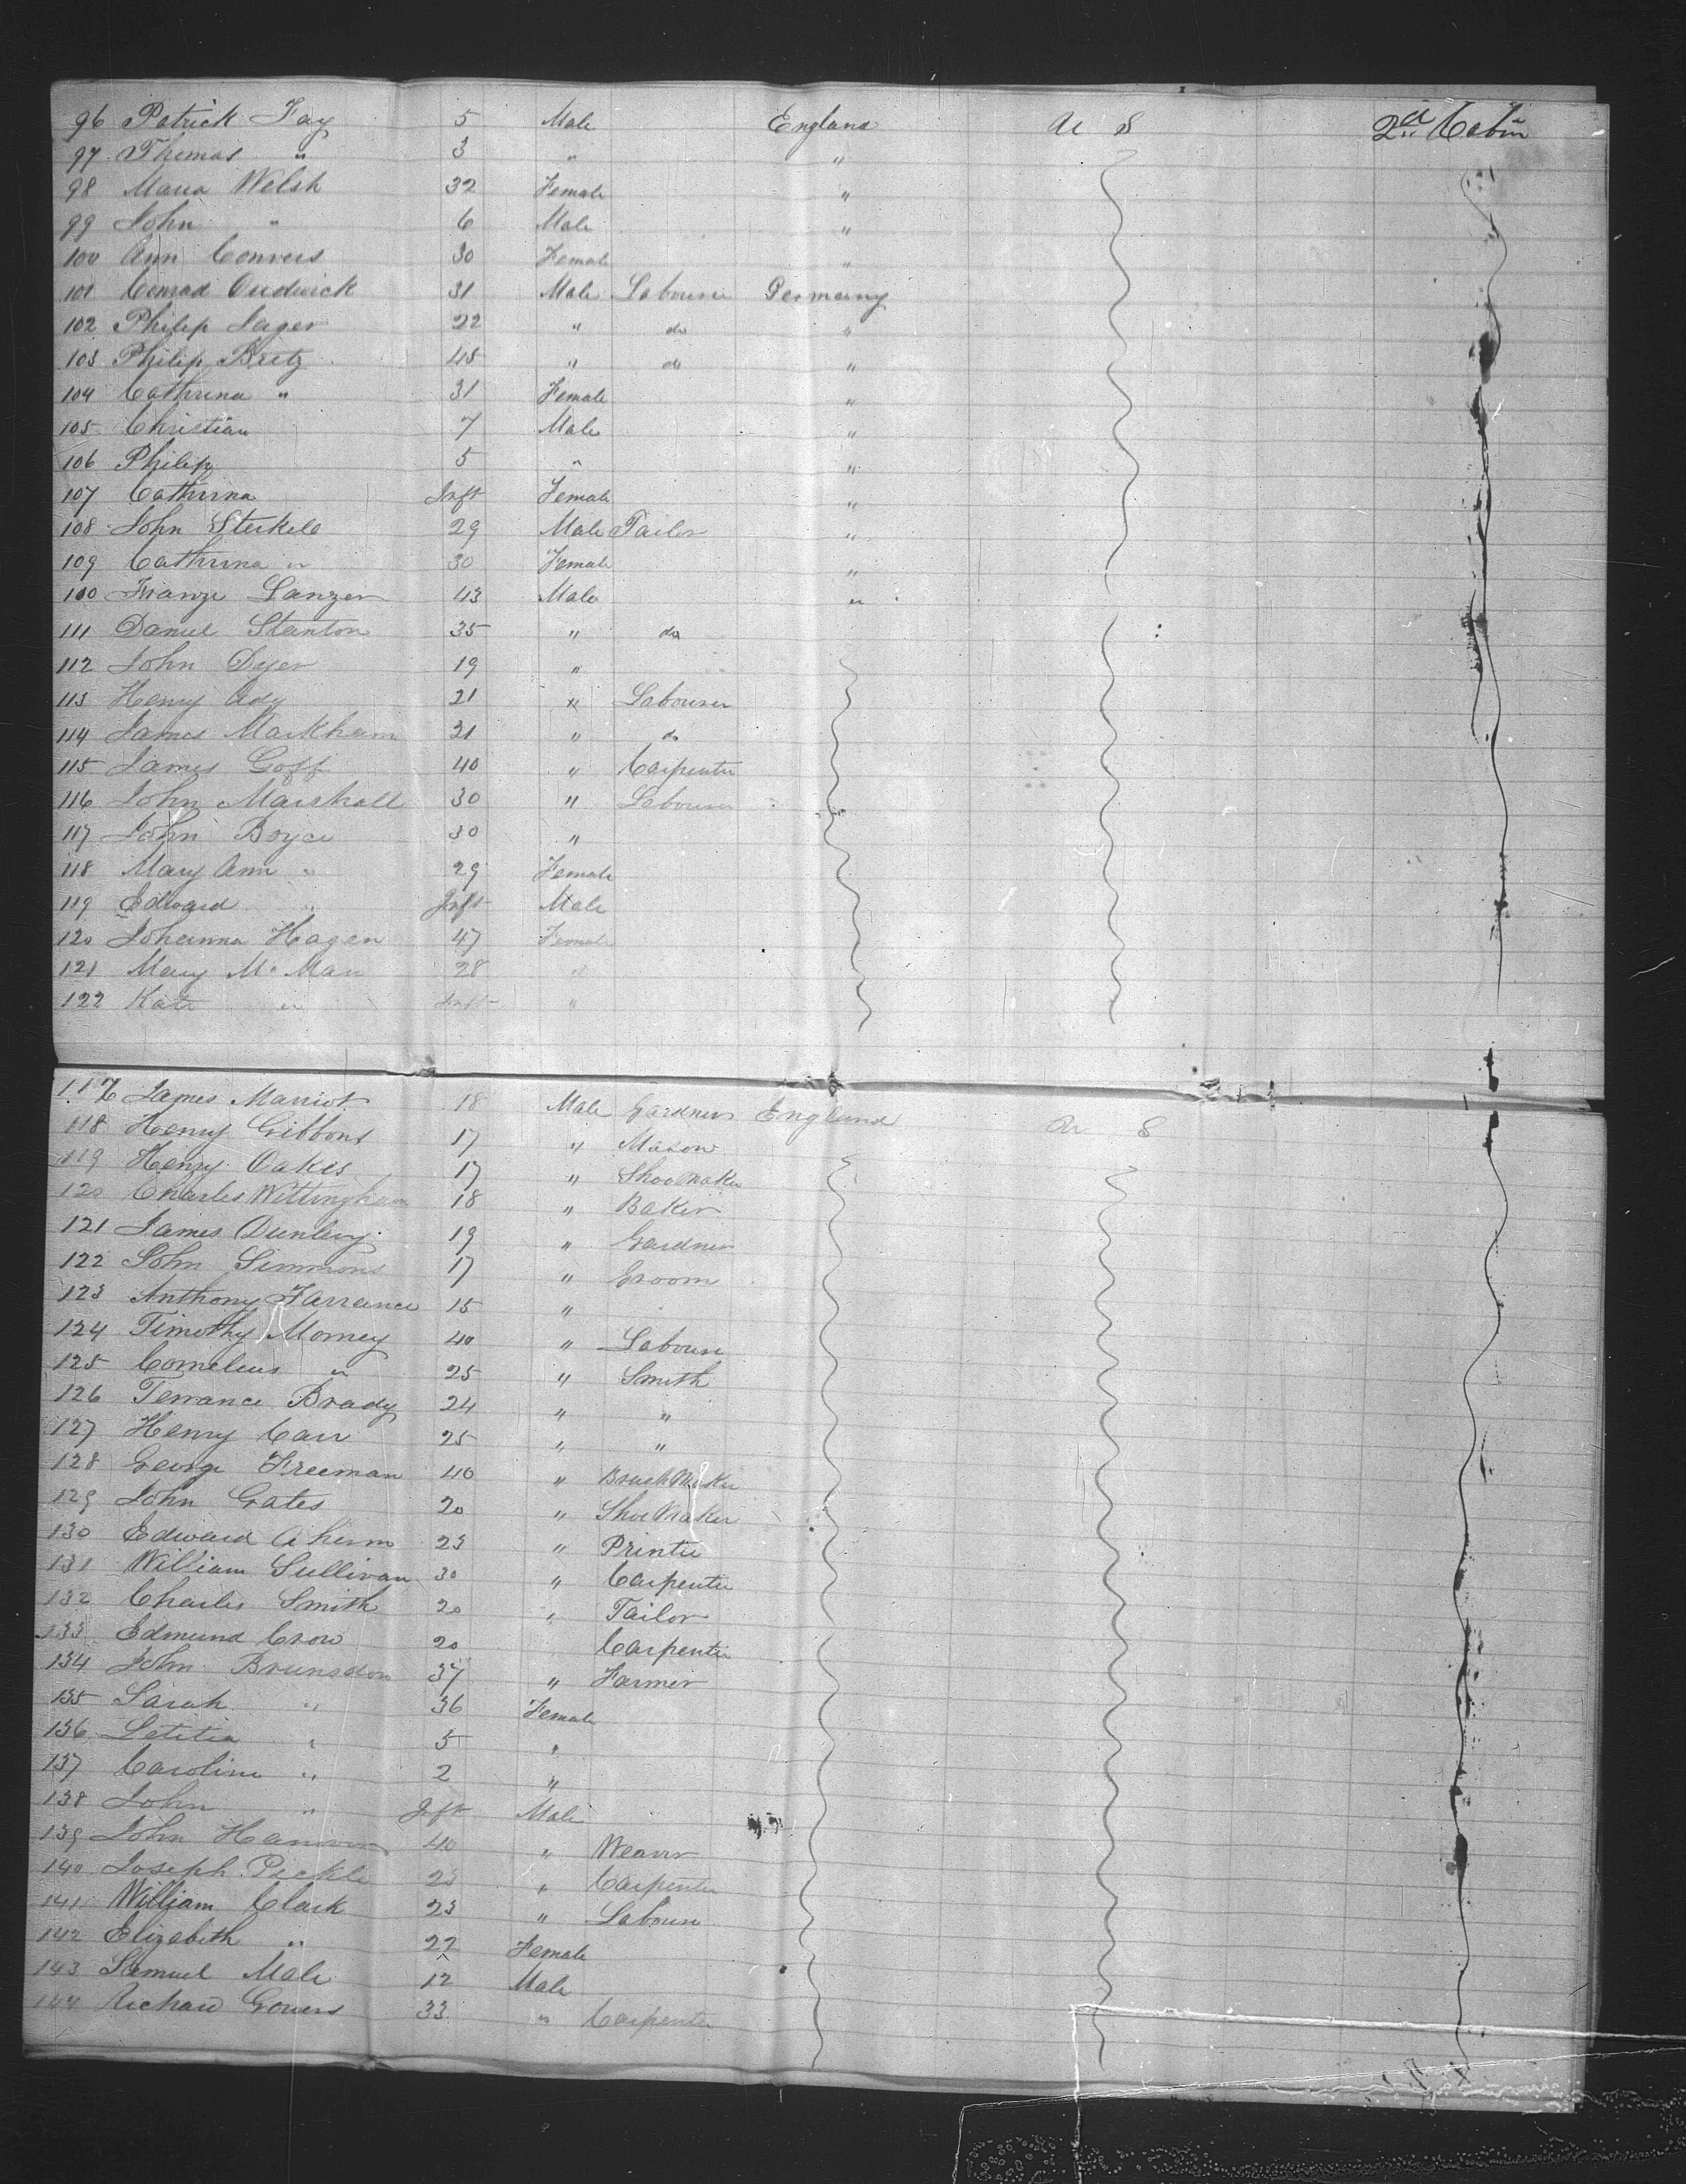 96 Patrick Fay 5 Male England U S 2nd Cabin
97 Thomas " 3 " "
98 Maria Welsh 32 Female "
99 John " 6 Male "
100 Ann Convers 30 Female "
101 Conrad 31 Male Labourer Germany
102 Philip Jager 22 " do "
103 Philip Bretz 45 " do "
104 Cathrina " 31 Female "
105 Christian 7 Male "
106 Philip 5 " "
107 Cathrina Inft Female "
108 John Sterkele 29 Male Tailor "
109 Cathrina " 30 Female "
100 Franze Lanzen 43 Male "
111 Daniel Stanton 35 " do
112 John Dyer 19 "
113 Henry Ady 21 " Labourer
114 James Markham 21 " do
115 James Goff 40 " Carpenter
116 John Marshall 30 " Labourer
117 John Boyce 30 "
118 Mary Ann " 29 Female
119 Edward " Inft Male
120 Johanna Hagen 47 Female
121 Mary McMan 28 "
122 Kate " Inft "
117 James Marriot 18 Male Gardner England U S
118 Henry Gibbons 17 " Mason
119 Henry Oakes 17 " Shoemaker
120 Charles Wittingham 18 " Baker
121 James Dunlevy 19 " Gardner
122 John Simmons 17 " Groom
123 Anthony Farrance 15 "
124 Timothy Morney 40 " Labourer
125 Cornelius " 25 " Smith
126 Terrance Brady 24 " "
127 Henry Carr 25 " "
128 George Freeman 40 " Brush Maker
129 John Gates 20 " Shoe Maker
130 Edward Ahern 23 " Printer
131 William Sullivan 30 " Carpenter
132 Charles Smith 20 " Tailor
133 Edmund Crow 20 Carpenter
134 John Brunsdon 37 " Farmer
135 Sarah " 36 Female
136 Letitia " 5 "
137 Caroline " 2 "
138 John " Inft Male
139 John 40 " Weaver
140 Joseph Pickle 23 " Carpenter
141 William Clark 23 " Labourer
142 Elizabeth " 22 Female
143 Samuel Male 12 Male
144 Richard Gowers 33 " Carpenter